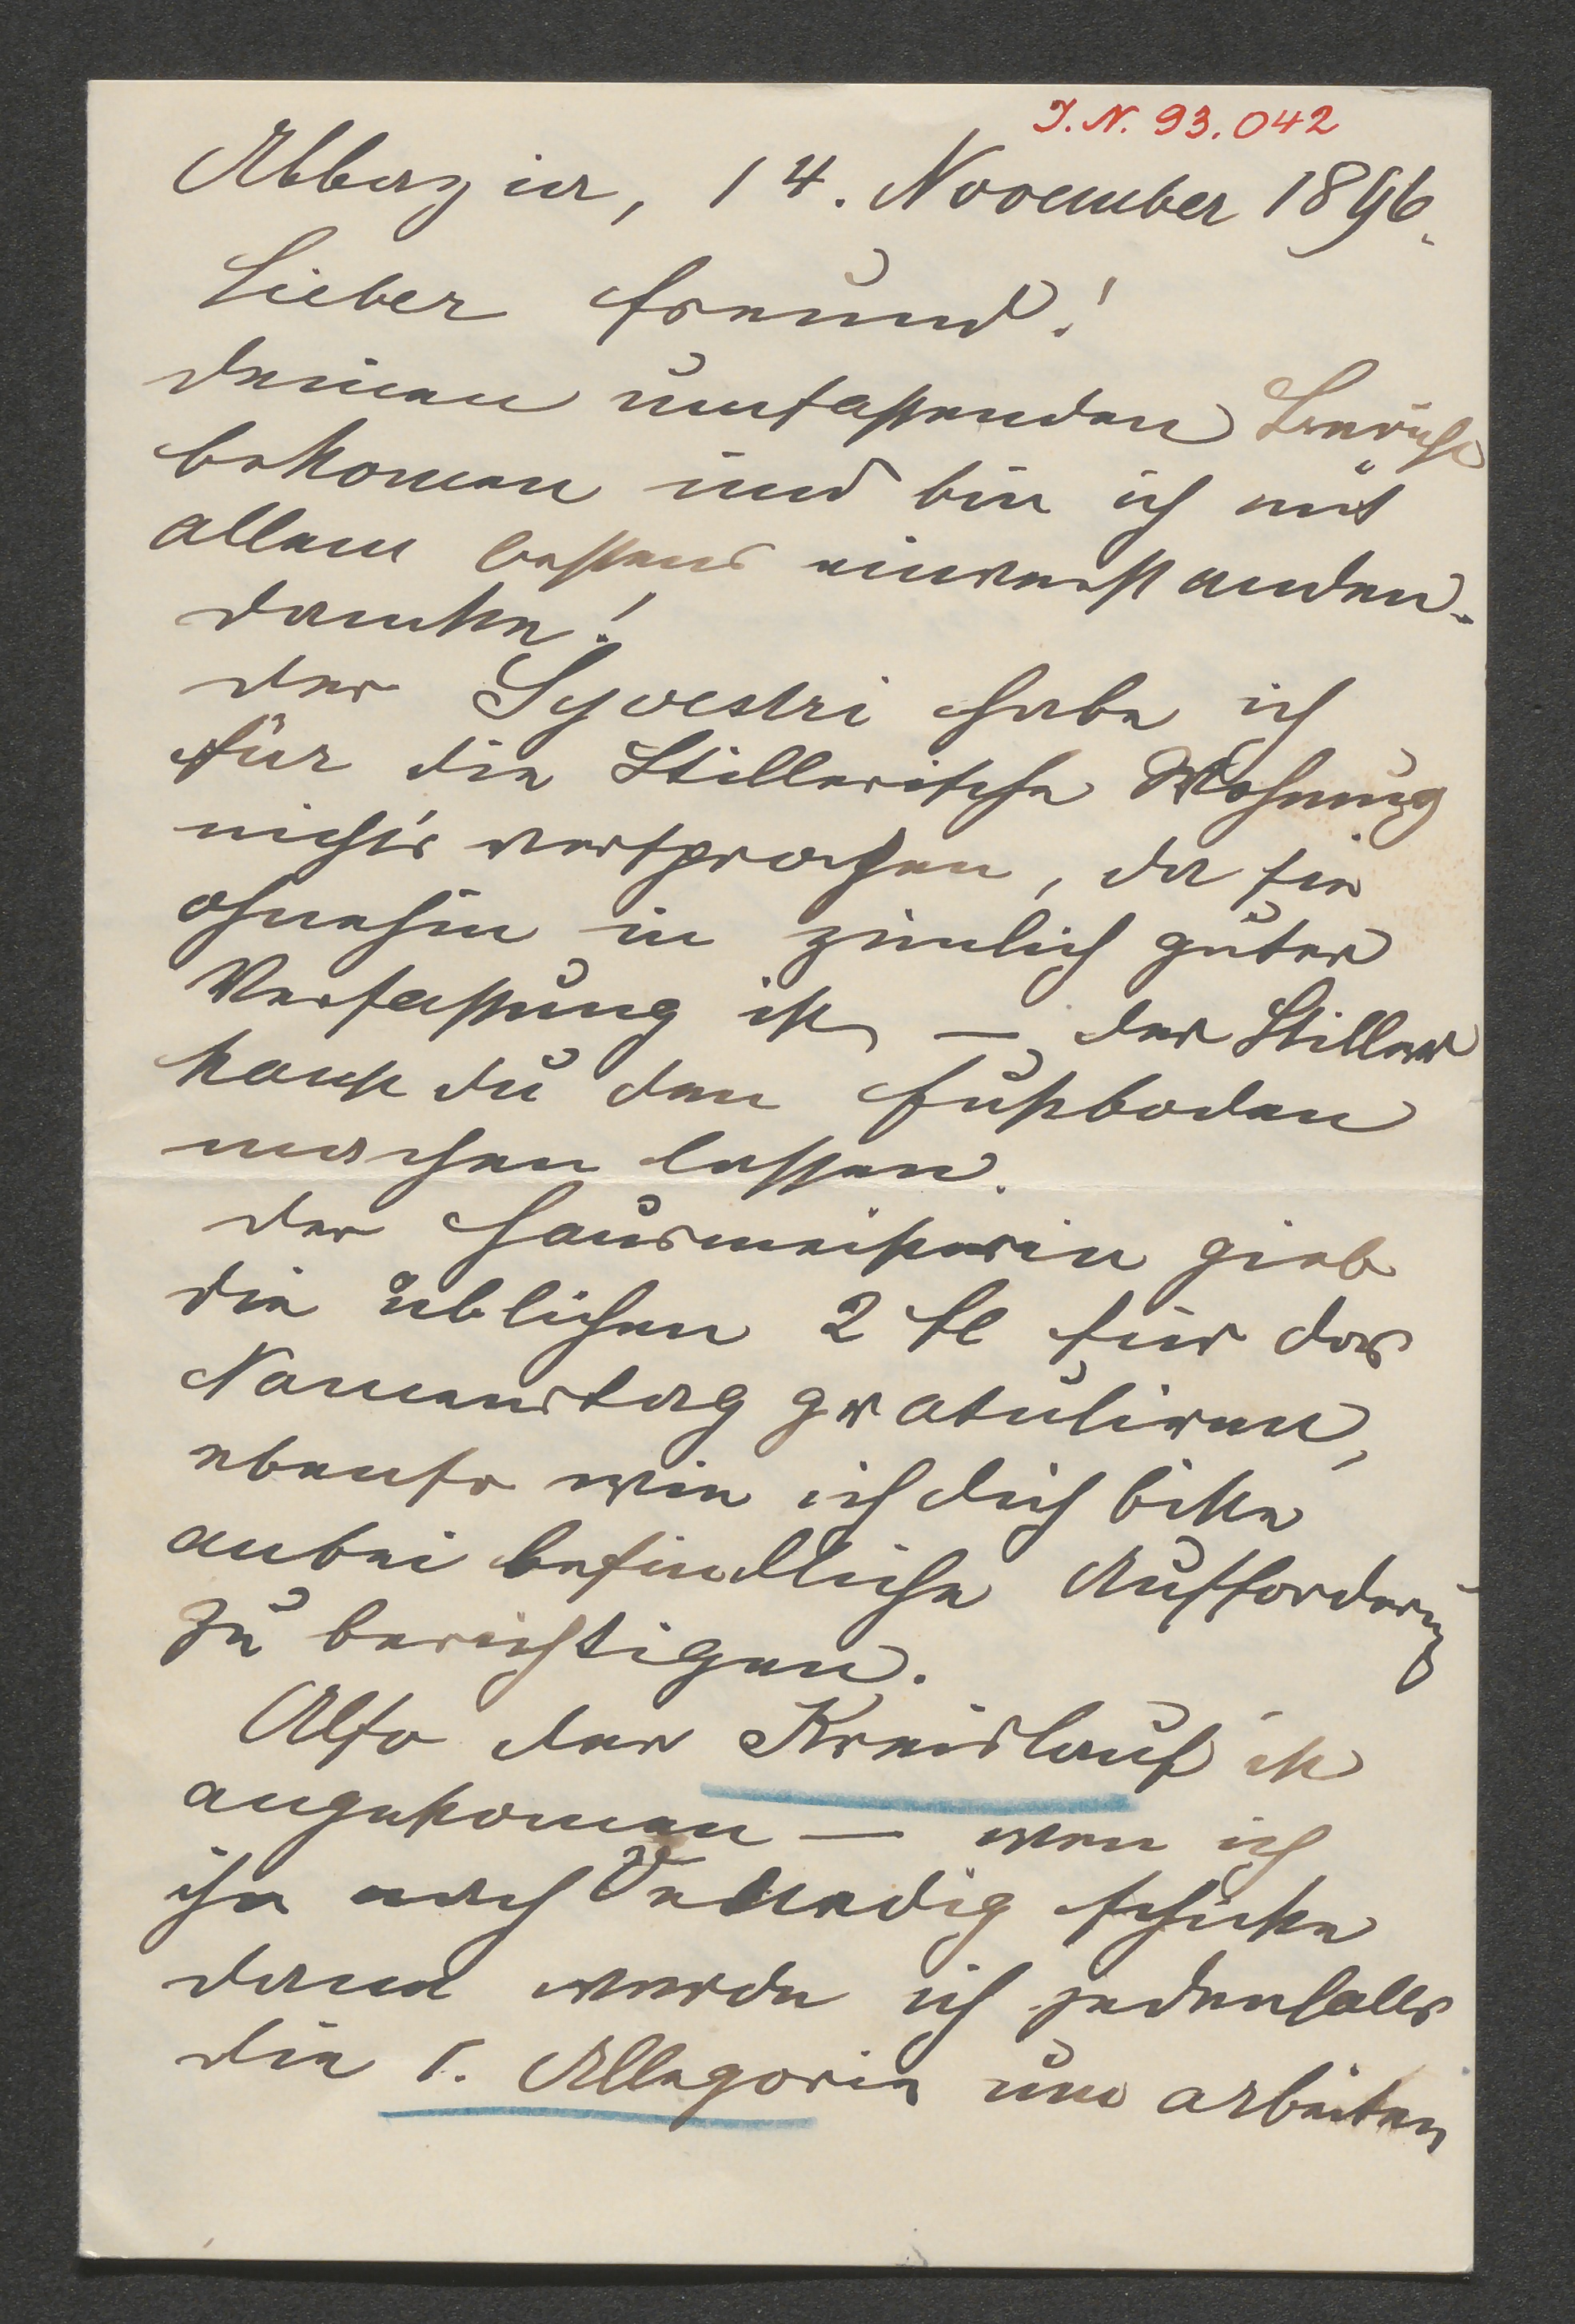 J. N. 93.042
Abbazia, 14. November 1896.
Lieber Freund!
deinen umfassenden Bericht
bekomen und bin ich mit
allem bestens einverstanden.
danke!
der Sylvestri habe ich
für die Stillerische Wohnung
nichts versprochen, da sie
ohnehin in zimlich guter
Verfassung ist, – der Stiller
kanst du den Fußboden
machen lassen.
der Hausmeisterin gieb
die üblichen 2 fl für das
Namenstag gratuliren,
ebenso wie ich dich bitte
anbei befindliche Aufforderung
zu berichtigen.
Also der Kreislauf ist
angekomen – wen ich
ihn nach Venedig schicke
dann werde ich jedenfalls
die 5. Allegorie um arbeiten